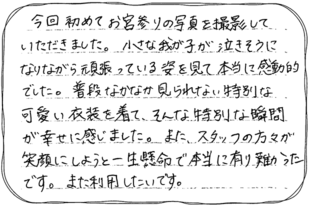 今回初めてお宮参りの写真を撮影して
いただきました。小さな我が子が泣きそうに
なりながら頑張っている姿を見て本当に感動的
でした。普段なかなか見られない特別な
可愛い衣装を着て、そんな特別な瞬間
が幸せに感じました。また、スタッフの方々が
笑顔にしようと一生懸命で本当に有り難かった
です。また利用したいです。